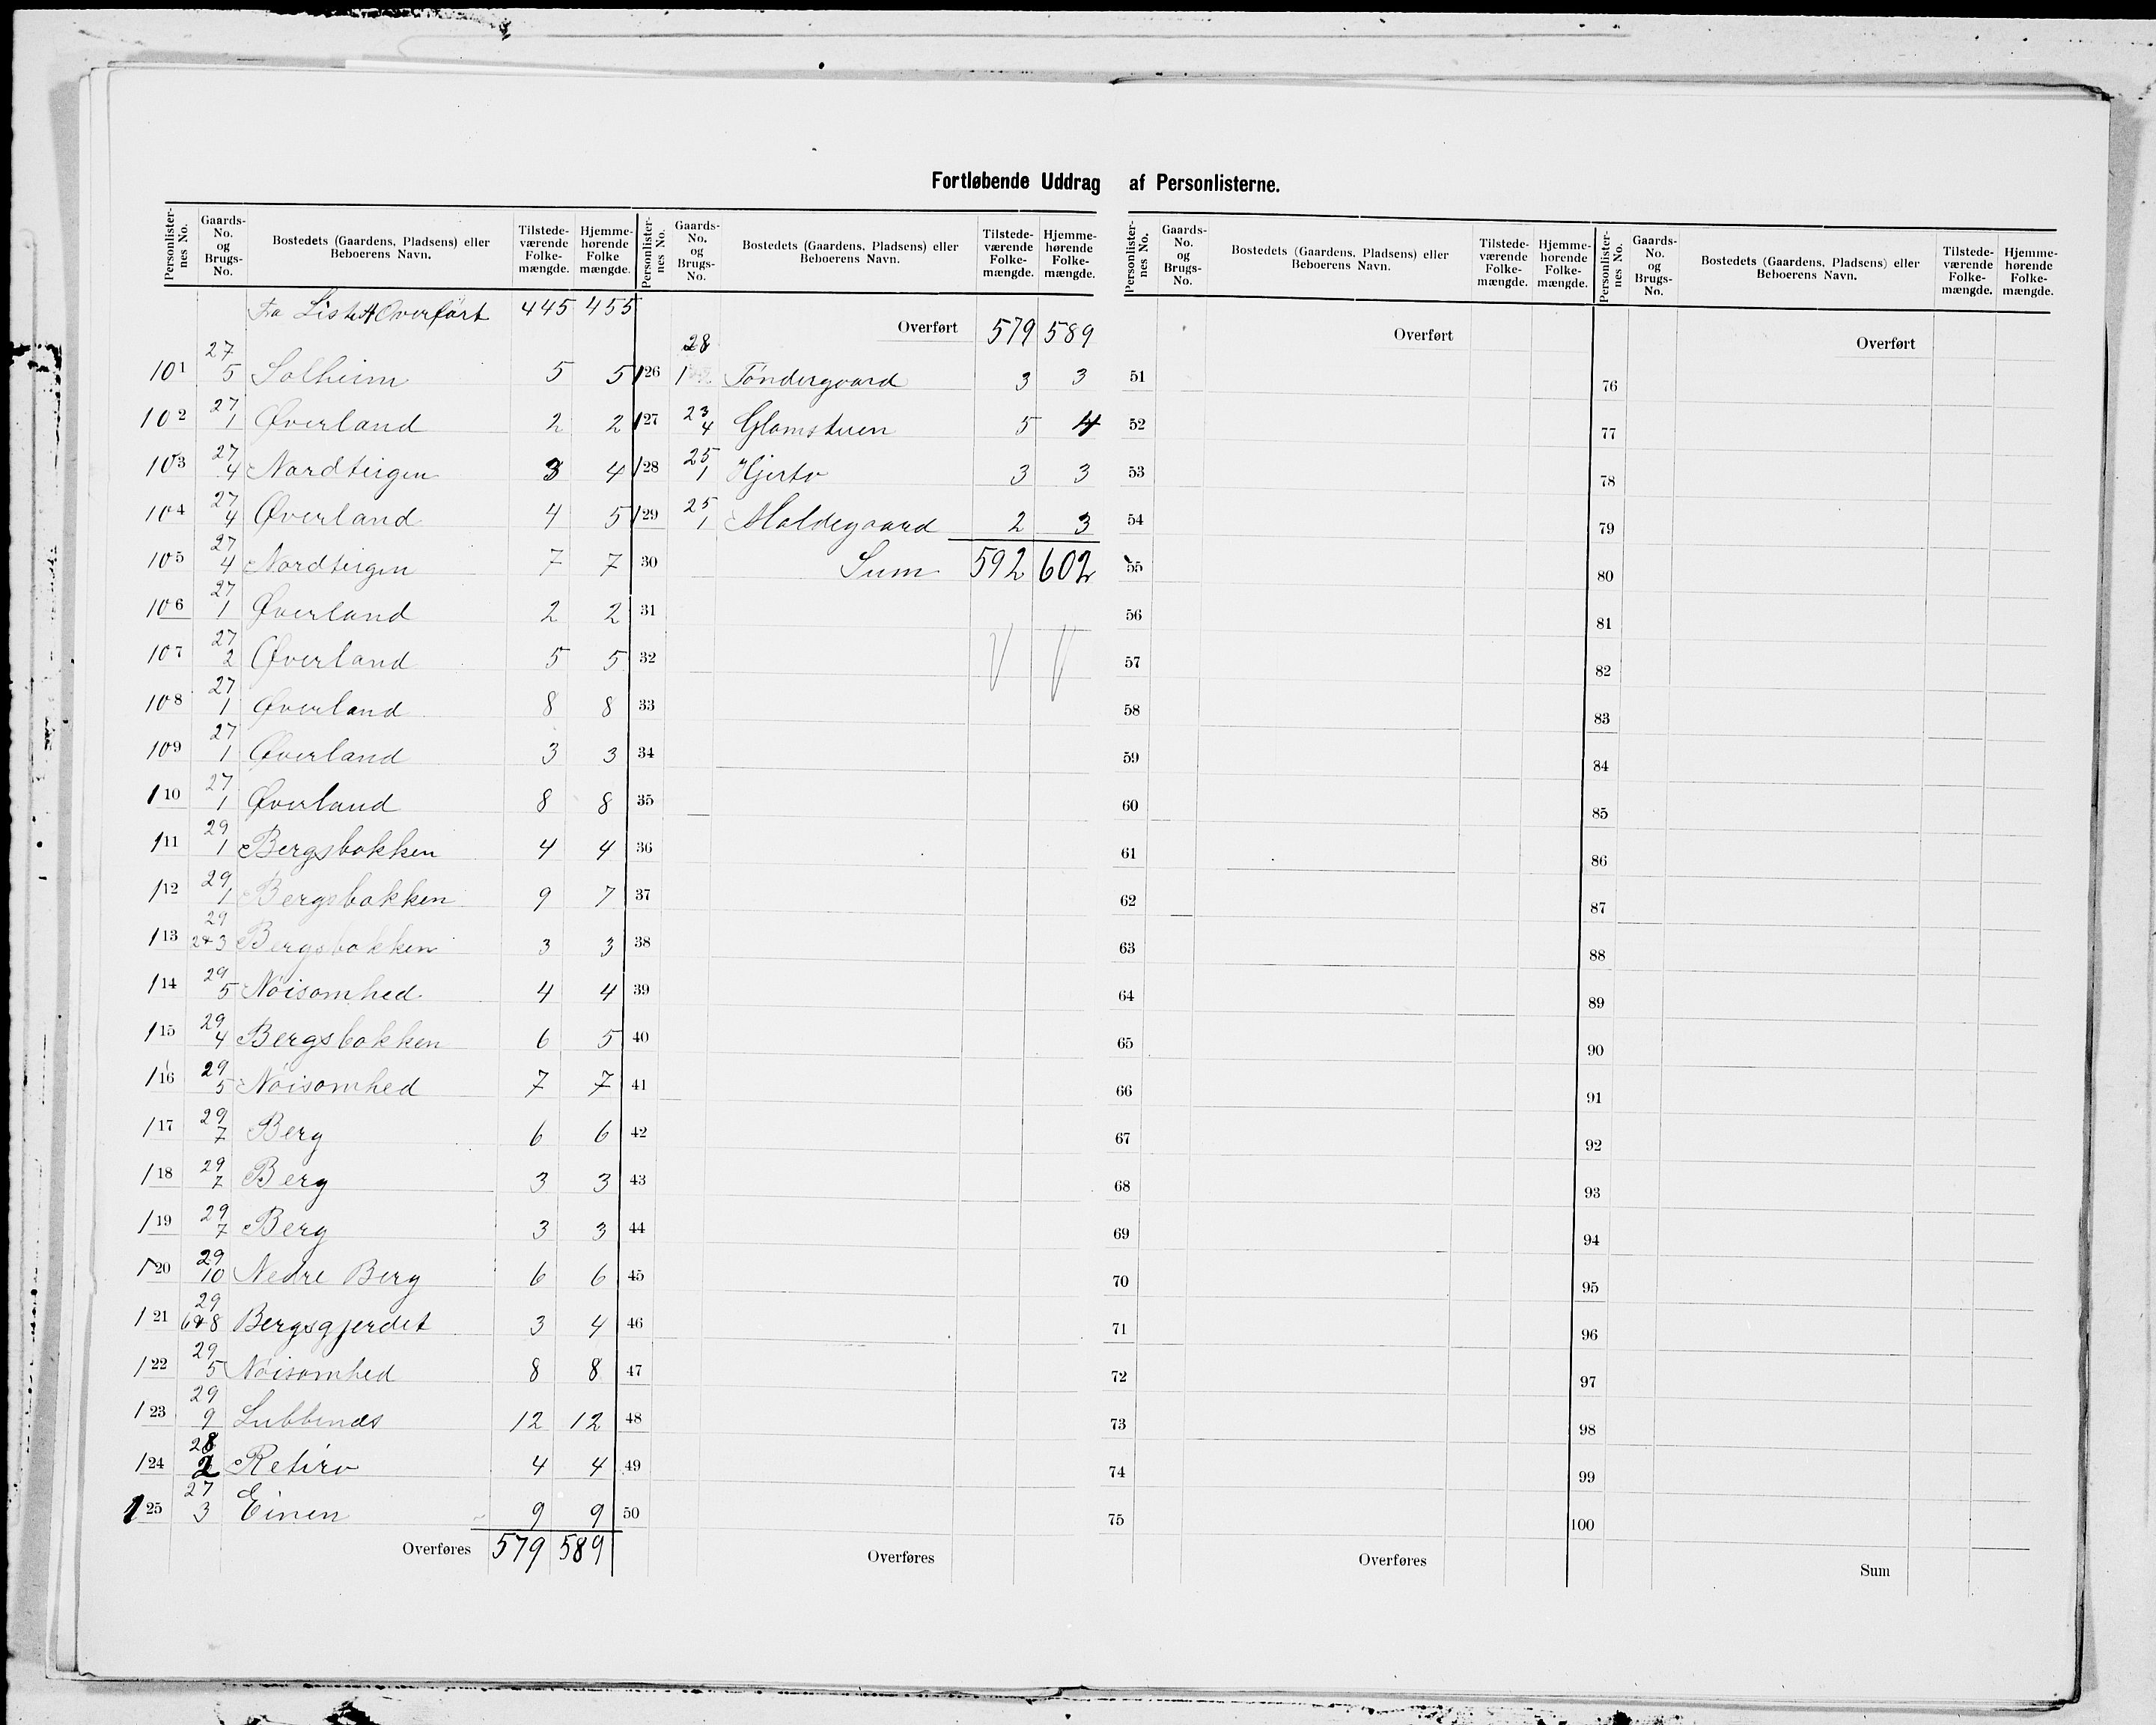 Fortløbende Uddrag af Personlisterne.
Personlisternes No. | Gaards-No. og Brugs-No. | Bostedets (Gaardens, Pladsens) eller Beboerens Navn. | Tilstedeværende Folkemængde. | Hjemmehørende Folkemængde.
Fra Liste A Overført 445 455
101 27/5 Solheim 5 5
102 27/1 Øverland 2 2
103 27/4 Nordteigen 3 4
104 27/4 Øverland 4 5
105 27/4 Nordteigen 7 7
106 27/1 Øverland 2 2
107 27/2 Øverland 5 5
108 27/1 Øverland 8 8
109 27/1 Øverland 3 3
110 27/1 Øverland 8 8
111 29/1 Bergsbakken 4 4
112 29/1 Bergsbakken 9 7
113 29/2&3 Bergsbakken 3 3
114 29/5 Nöisomhed 4 4
115 29/4 Bergsbakken 6 5
116 29/5 Nöisomhed 7 7
117 29/7 Berg 6 6
118 29/7 Berg 3 3
119 29/7 Berg 3 3
120 29/10 Nedre Berg 6 6
121 29/6&8 Bergsgjerdet 3 4
122 29/5 Nöisomhed 8 8
123 29/9 Lubbenæs 12 12
124 28/2 Retiro 4 4
125 27/3 Einen 9 9
Overføres 579 589
Personlisternes No. | Gaards-No. og Brugs-No. | Bostedets (Gaardens, Pladsens) eller Beboerens Navn. | Tilstedeværende Folkemængde. | Hjemmehørende Folkemængde.
Overført 579 589
126 28/1 Töndergaard 3 3
127 23/4 Glamstuen 5 4
128 25/1 Hjertø 3 3
129 25/1 Moldegaard 2 3
30 Sum 592 602
31
32
33
34
35
36
37
38
39
40
41
42
43
44
45
46
47
48
49
50
Overføres
Personlisternes No. | Gaards-No. og Brugs-No. | Bostedets (Gaardens, Pladsens) eller Beboerens Navn. | Tilstedeværende Folkemængde. | Hjemmehørende Folkemængde.
Overført
51
52
53
54
55
56
57
58
59
60
61
62
63
64
65
66
67
68
69
70
71
72
73
74
75
Overføres
Personlisternes No. | Gaards-No. og Brugs-No. | Bostedets (Gaardens, Pladsens) eller Beboerens Navn. | Tilstedeværende Folkemængde. | Hjemmehørende Folkemængde.
Overført
76
77
78
79
80
81
82
83
84
85
86
87
88
89
90
91
92
93
94
95
96
97
98
99
100
Sum